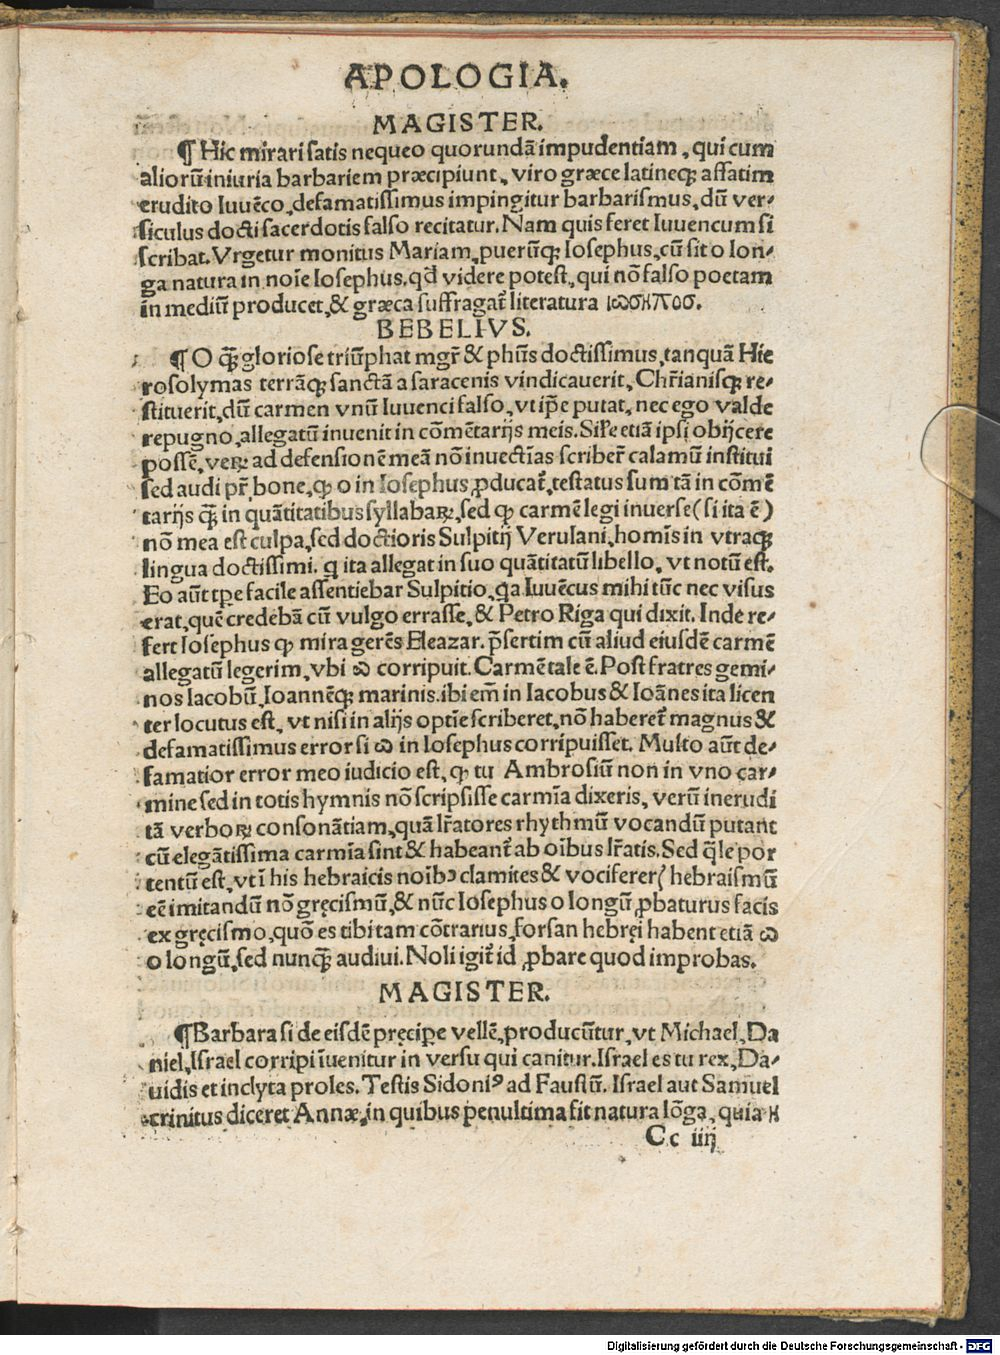 APOLOGIA.
MAGISTER.
¶ Hic mirari satis nequeo quorundã impudentiam, qui cum
aliorũ iniuria barbariem præcipiunt, viro græce latineqꝫ affatim
erudito Iuuẽco, defamatissimus impingitur barbarismus, dũ ver⸗
siculus docti sacerdotis falso recitatur. Nam quis feret Iuuencum si
scribat. Vrgetur monitus Mariam, puerũqꝫ Iosephus, cũ sit o lon⸗
ga natura in noīe Iosephus, qđ videre potest, qui nõ falso poetam
in mediũ producet, & græca suffragat̃ literatura
BEBELIVS.
¶ O qꝫ̃ gloriose triũphat mgr̃ & phũs doctissimus, tanquã Hie
rosolymas terrãqꝫ sanctã a saracenis vindicauerit, Chr̃ianisqꝫ re⸗
stituerit, dũ carmen vnũ Iuuenci falso, vt ip̃e putat, nec ego valde
repugno, allegatũ inuenit in cõmẽtarijs meis. Sil̃e etiã ipsi obijcere
possẽ, veꝝ ad defensionẽ meã nõ inuectĩas scriber̃ calamũ institui
sed audi pr̃ bone, ꝙ o in Iosephus ꝓducat̃, testatus sum tã in cõmẽ
tarijs qꝫ̃ in quãtitatibus syllabaꝝ, sed ꝙ carmẽ legi inuerse (si ita ẽ)
nõ mea est culpa, sed doctioris Sulpitij Verulani, homĩs in vtraqꝫ
lingua doctissimi. q ita allegat in suo quãtitatũ libello, vt notũ est.
Eo aũt tꝑe facile assentiebar Sulpitio, qa Iuuẽcus mihi tũc nec visus
erat, quẽ credebã cũ vulgo errasse, & Petro Riga qui dixit. Inde re⸗
fert Iosephus ꝙ mira gerẽs Eleazar. p̃sertim cũ aliud eiusdẽ carmẽ
allegatũ legerim, vbi ω corripuit. Carmẽ tale ẽ. Post fratres gemi⸗
nos Iacobũ, Ioannẽqꝫ marinis. ibi em̃ in Iacobus & Ioãnes ita licen
ter locutus est, vt nisi in alijs optĩe scriberet, nõ haberet̃ magnus &
defamatissimus error si ω in Iosephus corripuisset. Multo aũt de⸗
famatior error meo iudicio est, ꝙ tu Ambrosiũ non in vno car⸗
mine sed in totis hymnis nõ scripsisse carmĩa dixeris, verũ inerudi
tã verboꝝ consonãtiam, quã lr̃atores rhythmũ vocandũ putant
cũ elegãtissima carmĩa sint & habeant̃ ab oĩbus lr̃atis. Sed q̃le por
tentũ est, vt ĩ his hebraicis noĩbꝰ clamites & vociferer hebraismũ
eẽ imitandũ nõ gręcismũ, & nũc Iosephus o longũ ꝓbaturus facis
ex gręcismo, quõ es tibi tam cõtrarius, forsan hebręi habent etiã ω
o longũ, sed nunqꝫ̃ audiui. Noli igit̃ id ꝓbare quod improbas.
MAGISTER.
¶ Barbara si de eisdẽ pręcipe vellẽ, producũtur, vt Michael, Da
niel, Israel corripi ĩuenitur in versu qui canitur. Israel es tu rex, Da⸗
uidis et inclyta proles. Testis Sidoniꝰ ad Faustũ. Israel aut Samuel
crinitus diceret Annæ, in quibus penultima fit natura lõga, quia
Cc iiij
Digitalisierung gefördert durch die Deutsche Forschungsgemeinschaft - DFG